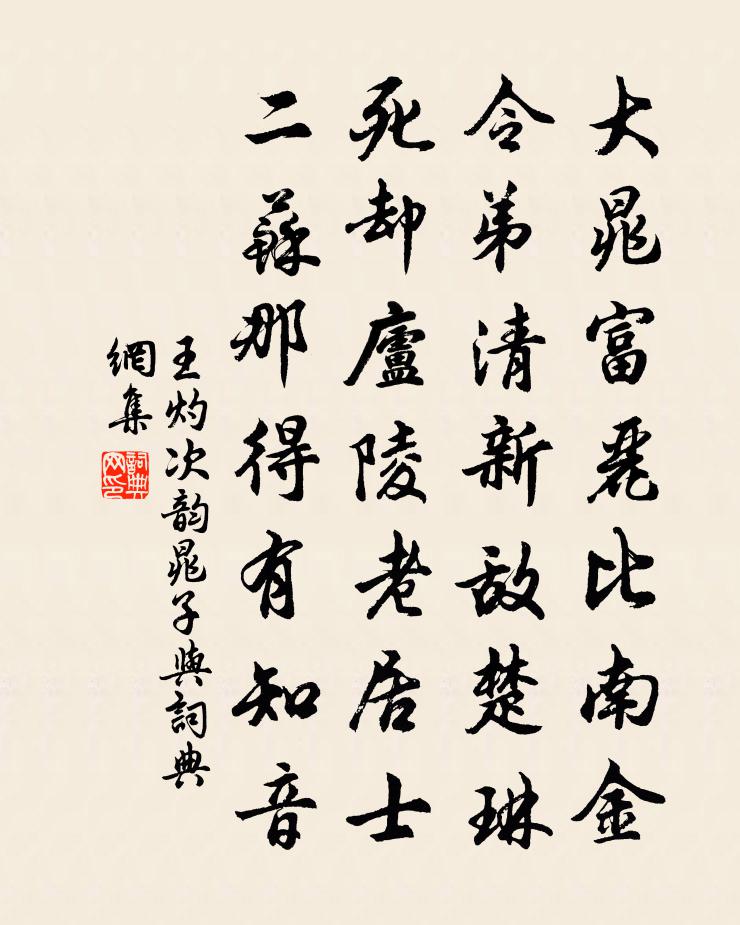 大晁富麗比南金
令弟清新敌楚琳
死却廬陵老居士
二蘇那得有知音
王灼次韵晁子與詞典
網集
詞典网印